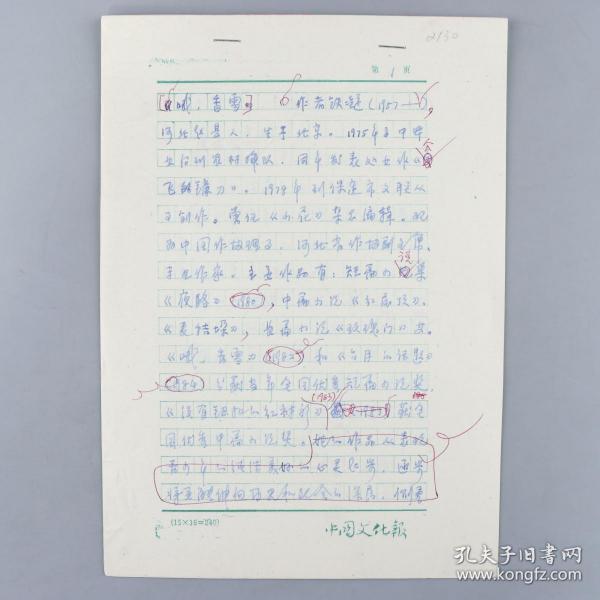 2130
第 1 页
[《哦,香雪》] 作者铁凝(1957—),
河北赵县人,生于北京。1975年高中毕
业后到农村插队,同年发表处女作《会
飞的镰刀》。1979年到保定市文联从
事创作。曾任《小花》杂志编辑。现
为中国作协理事,河北省作协副主席,
专业作家。主要作品有:短篇小说集
《夜路》(1980),中篇小说《红屋顶》、
《麦秸垛》,长篇小说《玫瑰门》等。
《哦,香雪》(1982)和《六月的话题》
(1984)分获当年全国优秀短篇小说奖,
《没有纽扣的红衬衫》(1983)获全
国优秀中篇小说奖。她的作品从表现
(15×16=240)
中国文化报
孔夫子旧书网
www.kongfz.com